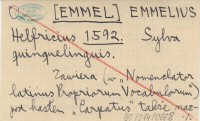 [EMMEL] EMMELIUS
Helfricius 1592. Sylva
quinquelinguis.
Zawiera (w "Nomenclator
latinus Propriorum Vocabulorum")
pod hasłem "Carpatus" także naz-